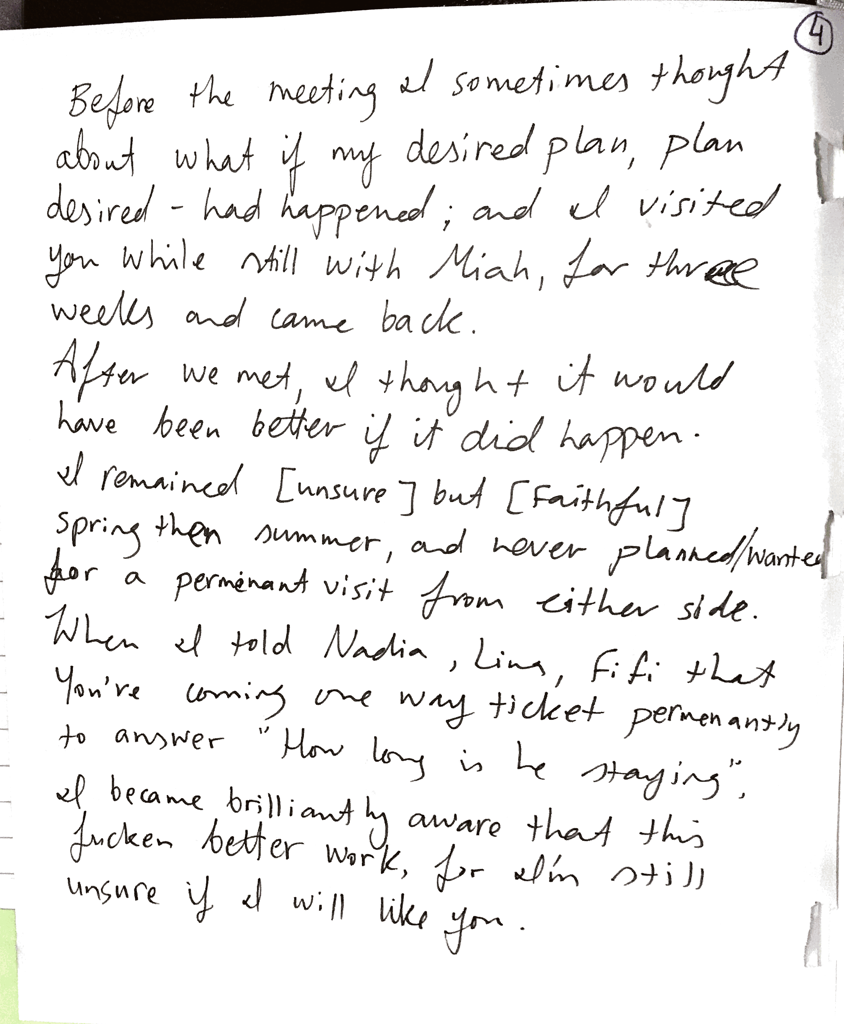 4
Before the meeting I sometimes thought
about what if my desired plan, plan
desired - had happened; and I visited
you while still with Miah, for three
weeks and came back.
After we met, I thought it would
have been better if it did happen.
I remained [unsure] but [Faithful]
spring then summer, and never planned/wanted
for a perminant visit from either side.
When I told Nadia, Lina, Fifi that
You're coming one way ticket permenantly
to answer "How long is he staying",
I became brilliantly aware that this
fucken better work, for I'm still
unsure if I will like you.